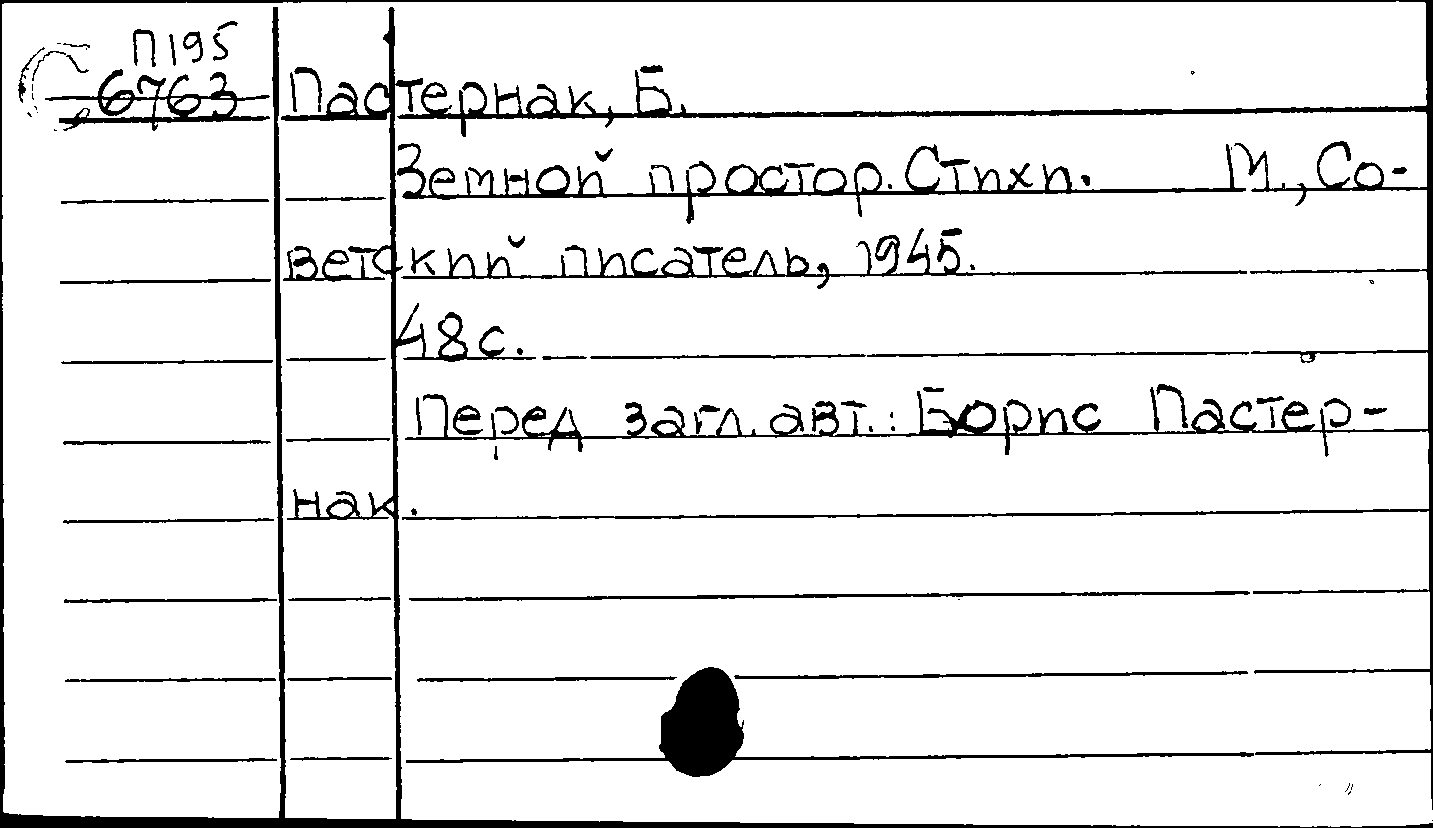 П195
6763
Пастернак, Б.
Земной простор. Стихи. М., Со-
ветский писатель, 1945.
48 с.
Перед загл. авт.: Борис Пастер-
нак.